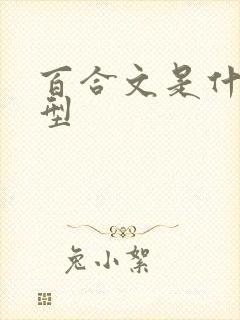 百合文是什
型
兔小絮